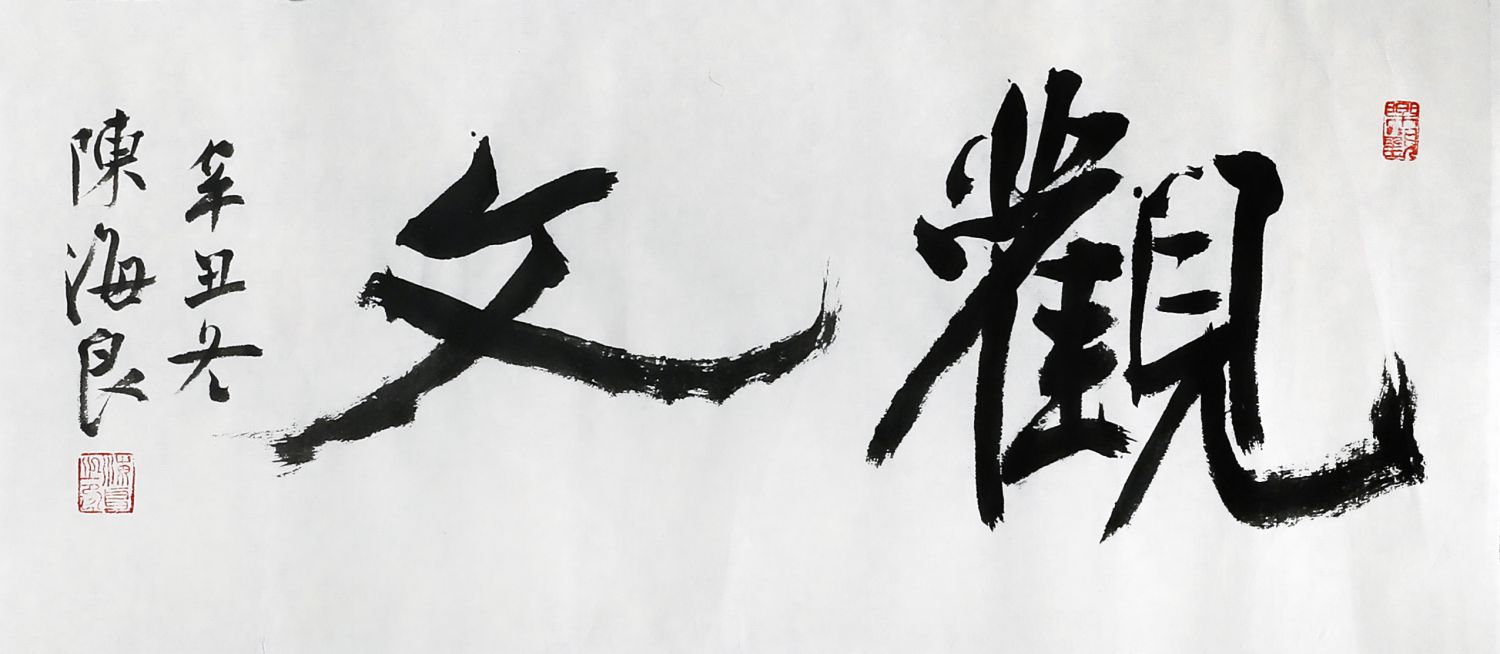 觀文
辛丑冬
陳海良